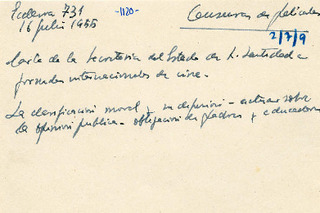 Ecclesia 731 -1120- Censuras de películas
16 julio 1955
2/7/9
Carta de la Secretaría del Estado de S. Santidad a
jornadas internacionales de cine.
La clasificación moral y su difusión - actuar sobre
la opinión pública - obligación de padres y educadores